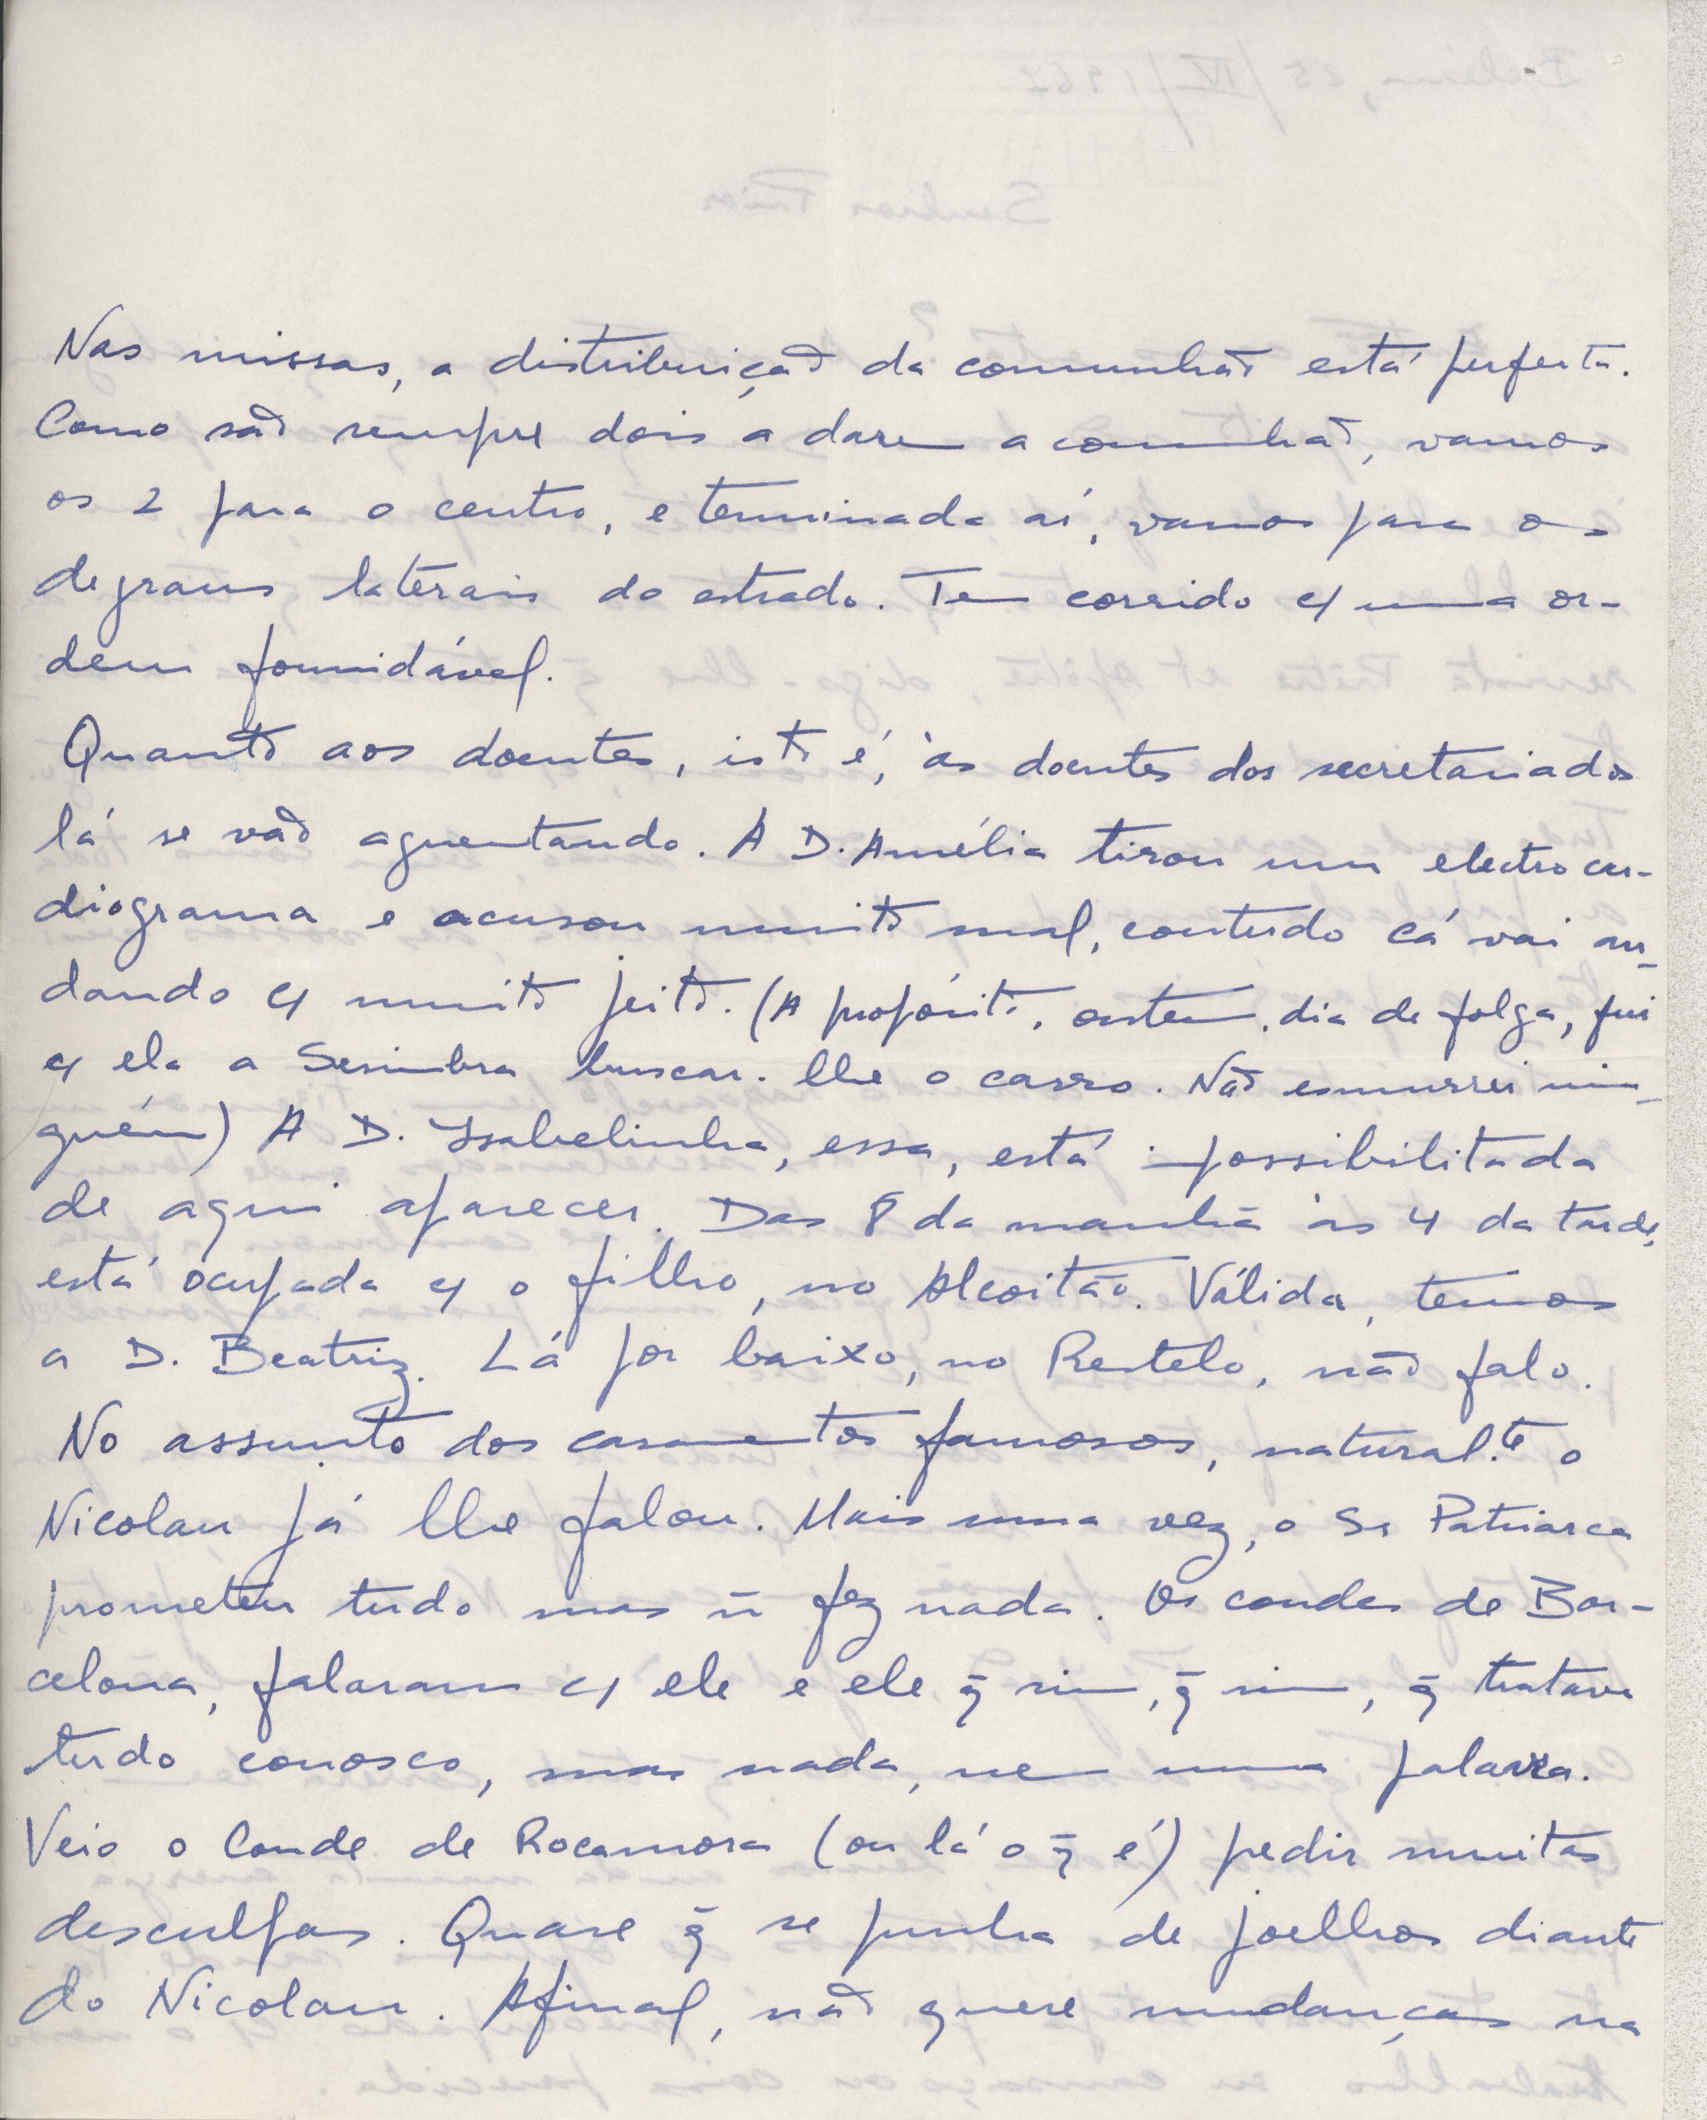 Nas missas, a distribuição da comunhão está perfeita.
Como são sempre dois a darem a comunhão, vamos
os 2 para o centro, e terminada aí, vamos para os
degraus laterais do estrado. Tem corrido c/ uma or-
dem formidável.
Quanto aos doentes, isto é, às doentes dos secretariados
lá se vão aguentando. A D. Amélia tirou um electrocar-
diograma e acusou muito mal, contudo cá vai an-
dando c/ muito jeito. (A propósito, ontem, dia de folga, fui
c/ ela a Sesimbra buscar-lhe o carro. Não esmurrei nin-
guém) A D. Isabelinha, essa, está impossibilitada
de aqui aparecer. Das 8 da manhã às 4 da tarde,
está ocupada c/ o filho, no Alcoitão. Válida, temos
a D. Beatriz. Lá por baixo, no Restelo, não falo.
No assunto dos casamentos famosos, natural.te o
Nicolau já lhe falou. Mais uma vez, o Sr Patriarca
prometeu tudo mas ñ fez nada. Os condes de Bar-
celona, falaram c/ ele e ele q̄ sim, q̄ sim, q̄ tratava
tudo conosco, mas nada, nem uma palavra.
Veio o Conde de Rocamora (ou lá o q̄ é) pedir muitas
desculpas. Quase q̄ se punha de joelhos diante
do Nicolau. Afinal, não quere mudanças na